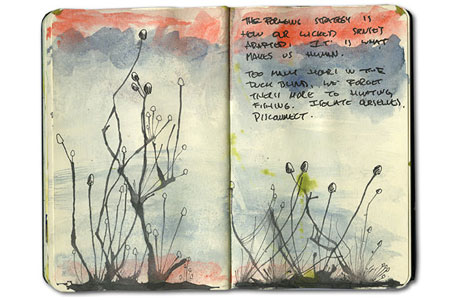 THE FORAGING STRATEGY IS
HOW OUR WICKED SENSES
ADAPTED. IT IS WHAT
MAKES US HUMAN.
TOO MANY HOURS IN THE
DUCK BLIND, WE FORGET
THERE'S MORE TO HUNTING
FISHING. ISOLATE OURSELVES.
DISCONNECT.